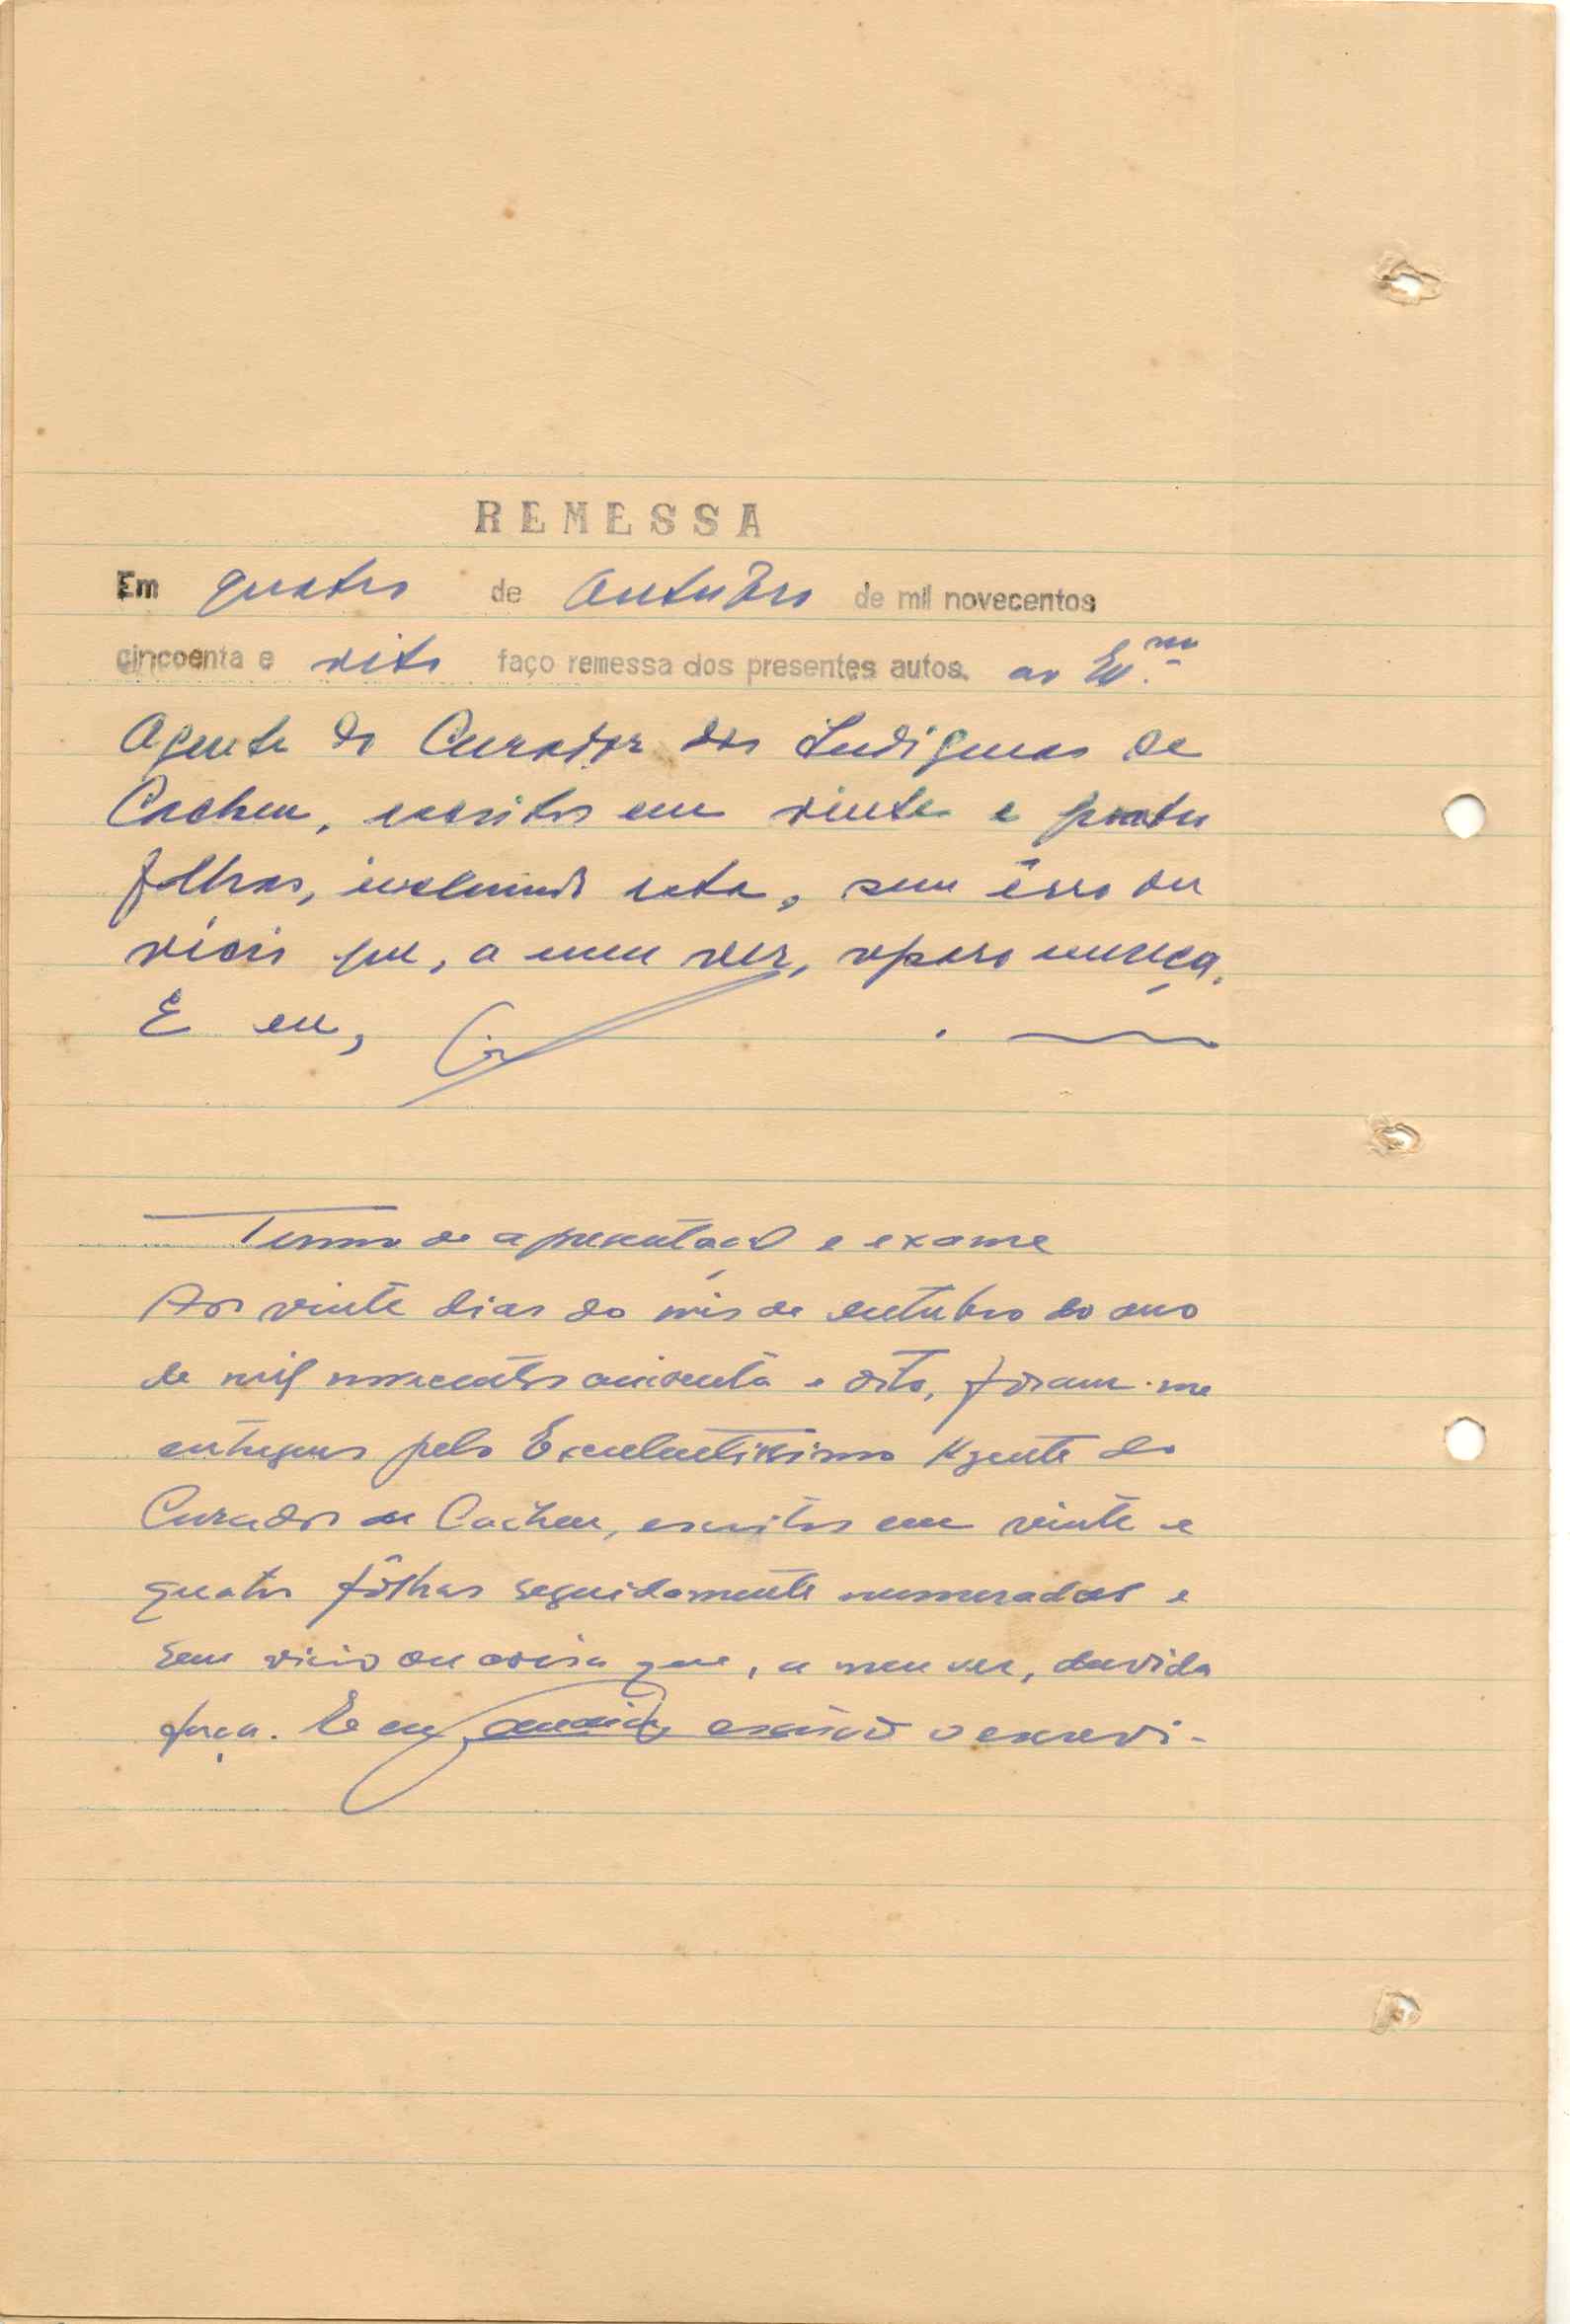 REMESSA
Em quatro de Outubro de mil novecentos
cincoenta e oito faço remessa dos presentes autos. ao Ex.mo
Agente do Curador dos Indígenas de
Cacheu, escritos em vinte e quatro
folhas, incluindo esta, sem êrro ou
vício que, a meu ver, reparo mereça.
E eu,
Termo de apresentação e exame
Aos vinte dias do mês de outubro do ano
de mil novecentos cincoenta e oito, foram-me
entregues pelo Excelentíssimo Agente do
Curador de Cacheu, escritos em vinte e
quatro fôlhas seguidamente numeradas e
sem vicio ou coisa que, a meu ver, duvida
faça. E eu escrivão o escrevi-